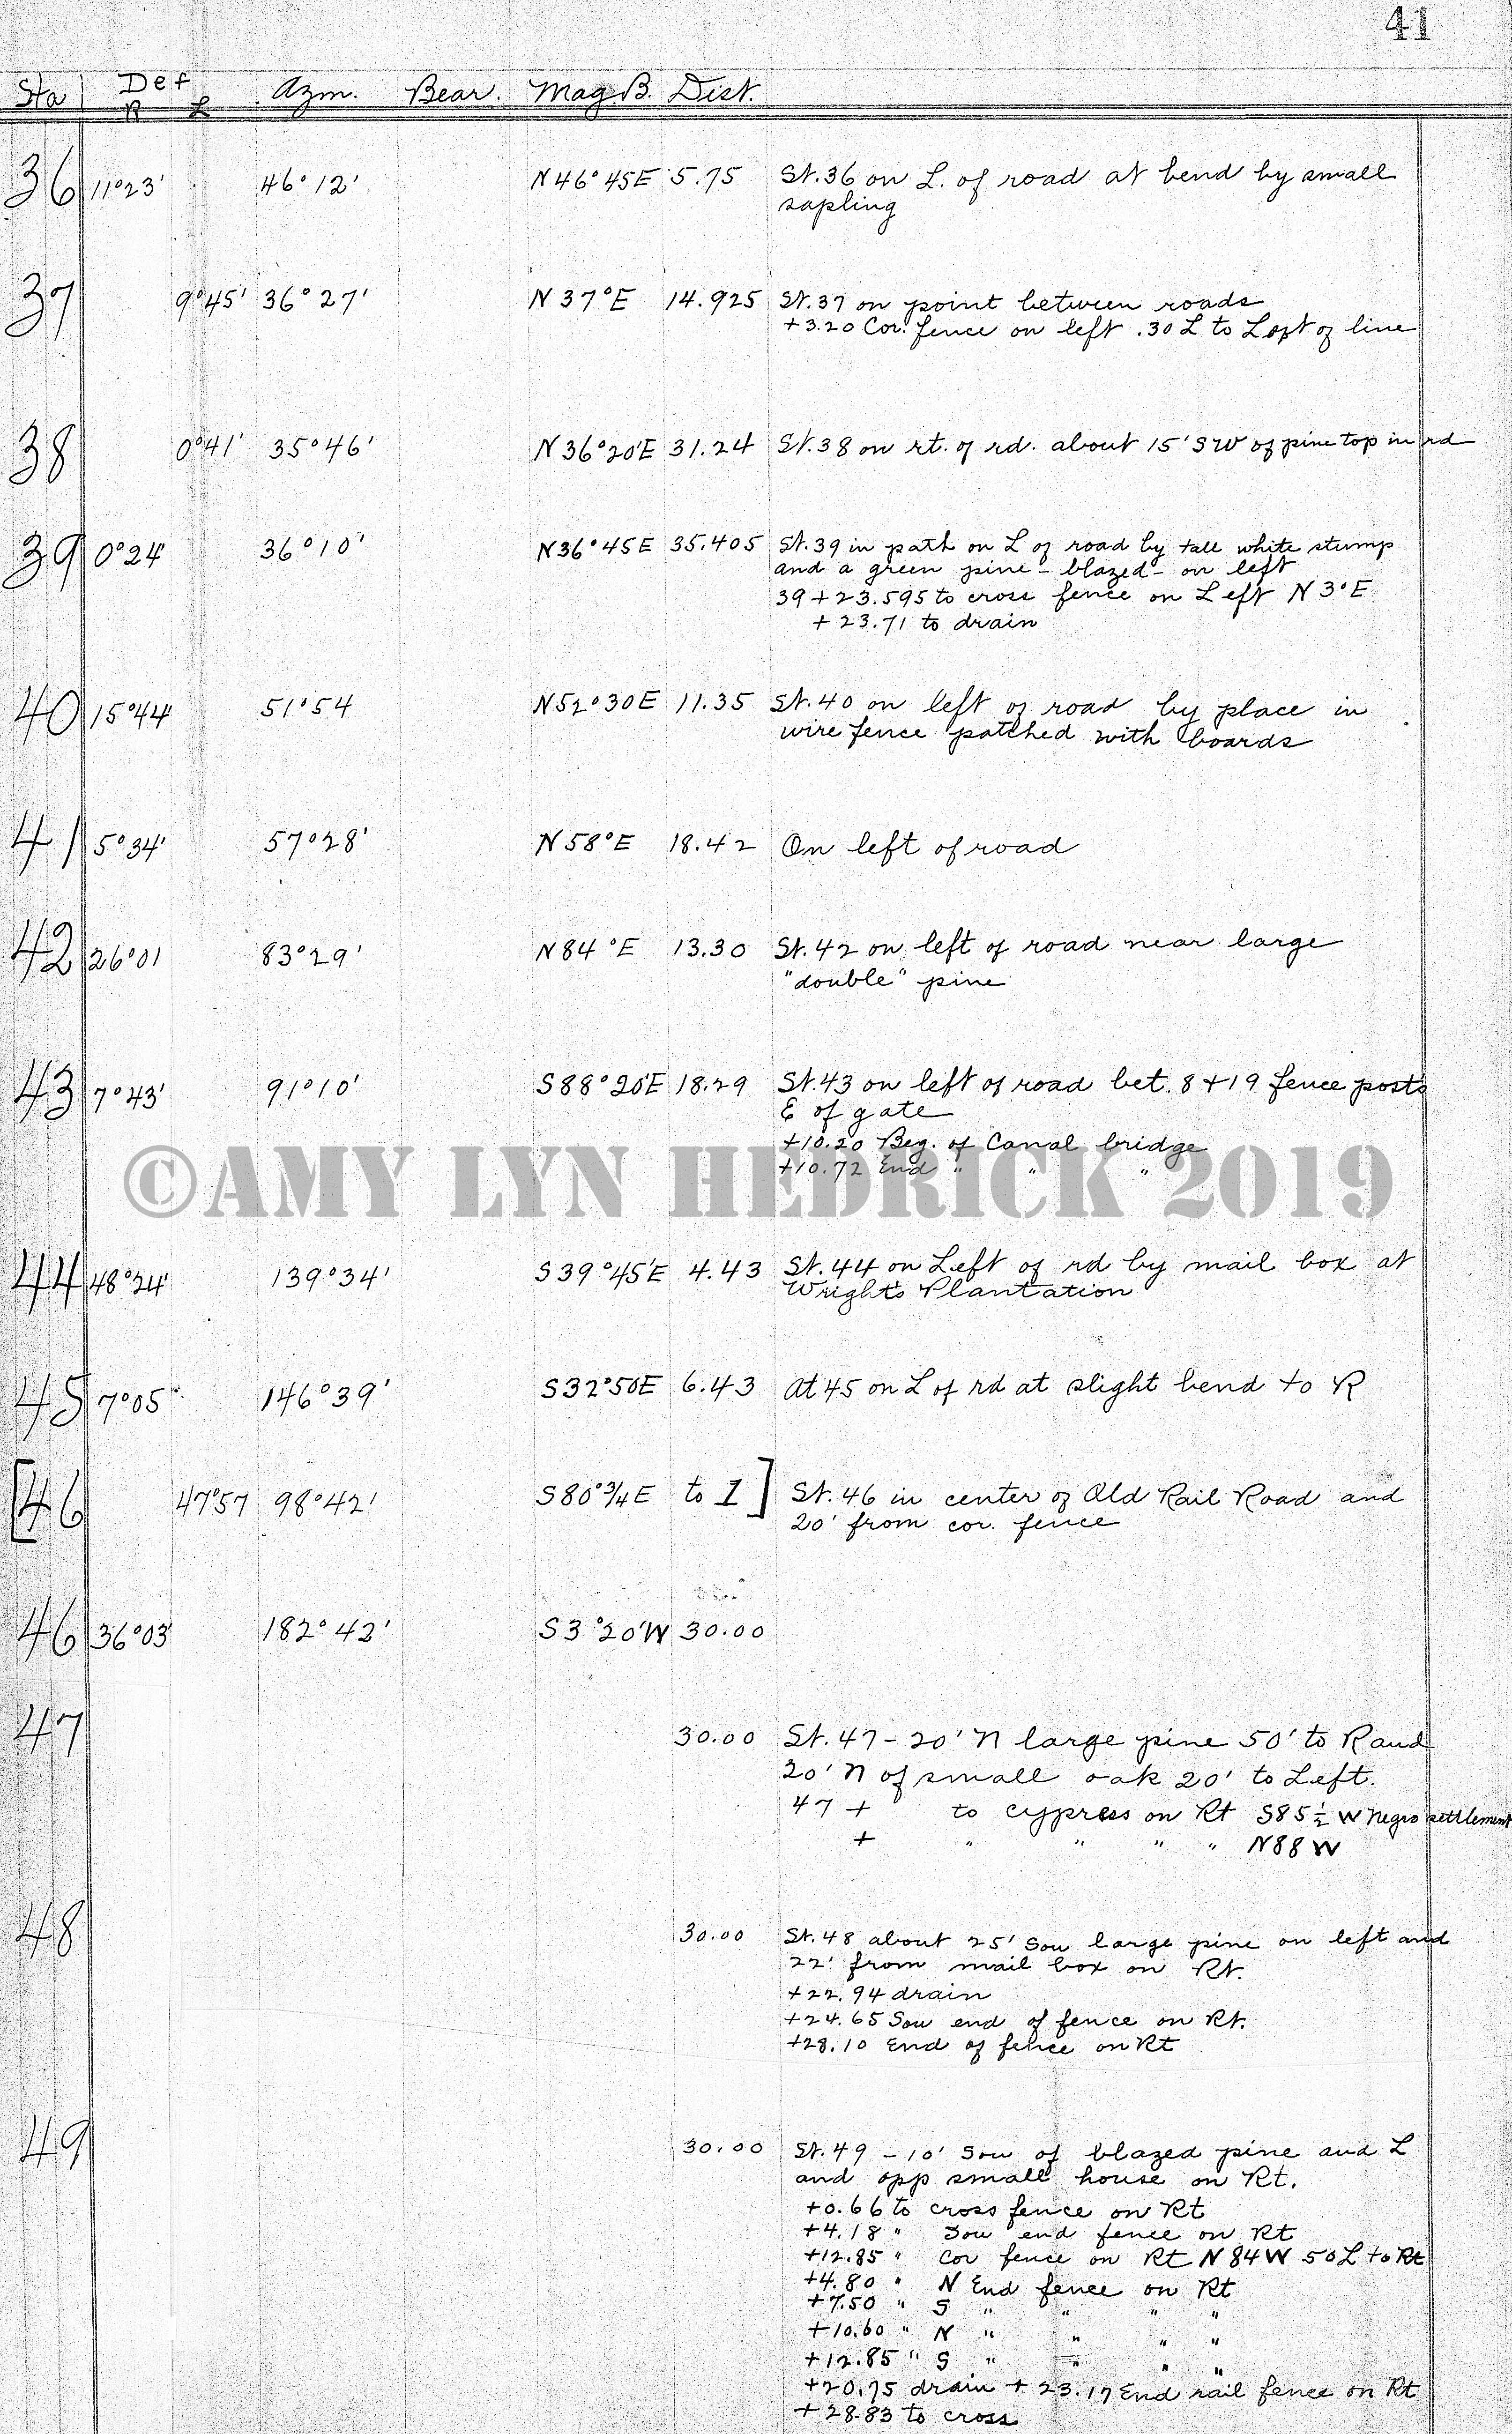 41
Sta Def R L Azm. Bear. Mag. B. Dist.
36 11°23' 46°12' N46°45E 5.75 St.36 on L. of road at bend by small
sapling
37 9°45' 36°27' N37°E 14.925 St.37 on point between roads
+3.20 Cor. fence on left .30 L to L of line
38 0°41' 35°46' N36°20'E 31.24 St.38 on rt. of rd. about 15' SW of pine top in rd
39 0°24' 36°10' N36°45E 35.405 St.39 in path on L of road by tall white stump
and a green pine - blazed - on left
39 + 23.595 to cross fence on Left N3°E
+ 23.71 to drain
40 15°44' 51°54 N52°30E 11.35 St.40 on left of road by place in
wire fence patched with boards
41 5°34' 57°28' N58°E 18.42 On left of road
42 26°01 83°29' N84°E 13.30 St.42 on left of road near large
"double" pine
43 7°43' 91°10' S88°20'E 18.29 St.43 on left of road bet. 8 + 19 fence posts
E of gate
+10.20 Beg. of Canal bridge
+10.72 End " " "
©AMY LYN HEDRICK 2019
44 48°24' 139°34' S39°45'E 4.43 St.44 on Left of rd by mail box at
Wright's Plantation
45 7°05' 146°39' S32°50E 6.43 At 45 on L of rd at slight bend to R
[46 47°57 98°42' S80°3/4E to 1] St. 46 in center of Old Rail Road and
20' from cor. fence
46 36°03' 182°42' S3°20'W 30.00
47 30.00 St. 47 - 20' N large pine 50' to R and
20' N of small oak 20' to Left.
47 + to cypress on Rt S85 1/2 W Negro settlement
+ " " " " N88W
48 30.00 St. 48 about 25' Sou large pine on left and
22' from mail box on Rt.
+22.94 drain
+24.65 Sou end of fence on Rt.
+28.10 End of fence on Rt
49 30.00 St. 49 - 10' Sou of blazed pine and L
and opp small house on Rt.
+0.66 to cross fence on Rt
+4.18 " Sou end fence on Rt
+12.85 " Cor fence on Rt N84W 50L to Rt
+4.80 " N End fence on Rt
+7.50 " S " " " "
+10.60 " N " " " "
+12.85 " S " " " "
+20.75 drain + 23.17 End rail fence on Rt
+28.83 to cross